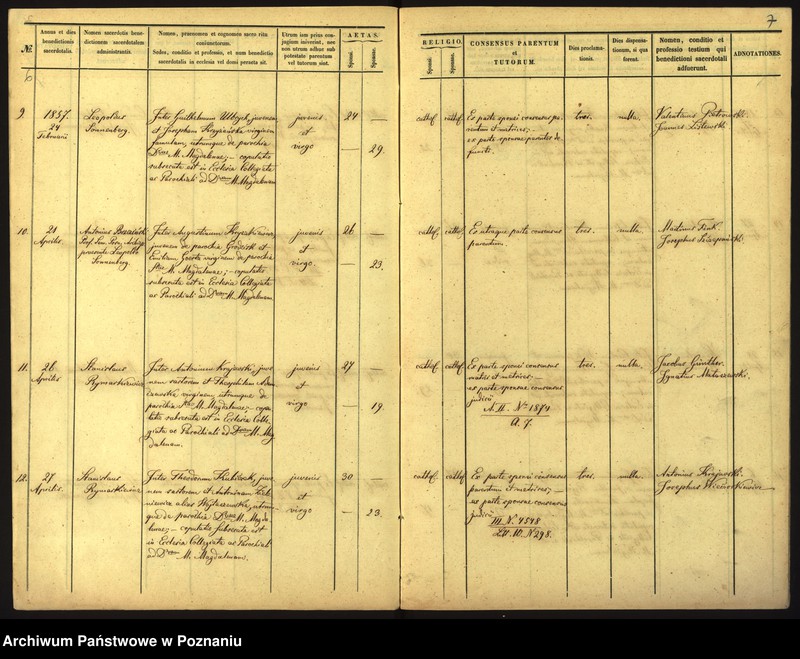 7
6
№.
Annus et dies
benedictionis
sacerdotalis.
Nomen sacerdotis bene-
dictionem sacerdotalem
administrantis.
Nomen, praenomen et cognomen sacro ritu
coniunctorum.
Sedes, conditio et professio, et num benedictio
sacerdotalis in ecclesia vel domi peracta sit.
Utrum iam prius con-
jugium inierint, nec
non utrum adhuc sub
potestate parentum
vel tutorum sint.
AETAS.
Sponsi.
Sponsae.
RELIGIO.
Sponsi.
Sponsae.
CONSENSUS PARENTUM
ET
TUTORUM.
Dies proclama-
tionis.
Dies dispensa-
tionum, si qua
forent.
Nomen, conditio et
professio testium qui
benedictioni sacerdotali
adfuerunt.
ADNOTATIONES.
9.
1857.
24
Februarii
Leopoldus
Sonnenberg.
Inter Guilhelmum juvenem
et Josepham virginem
famulam, utrumque de parochia
Dvae M. Magdalenae; – copulatio
subsecuta est in Ecclesia Collegiata
ac Parochiali ad Dvam M. Magdalenam
juvenis
et
virgo
24 —
— 29.
cathol. cathol.
Ex parte sponsi consensus pa-
rentum et
ex parte sponsae parentes de-
functi.
tres.
nulla.
Valentinus Piotrowski.
Joannes Liszewski
10.
21
Aprilis.
Antonius
Leopoldo
Sonnenberg.
Inter Augustinum
juvenem de parochia Grodzisk et
Emiliam virginem de parochia
Stae M. Magdalenae; – copulatio
subsecuta est in Ecclesia Collegiata
ac Parochiali ad Dvam M. Magdalenam
juvenis
et
virgo
26 —
— 23.
cathol. cathol.
Ex utraque parte consensus
parentum.
tres.
nulla.
Martinus Fink.
Josephus
11.
26
Aprilis
Stanislaus
Rymarkiewicz
Inter Antonium Krajewski, juve-
nem sartorem et Theophilam
virginem utrumque de
parochia Stae M. Magdalenae; – copu-
latio subsecuta est in Ecclesia Colle-
giata ac Parochiali ad Dvam M. Mag-
dalenam.
juvenis
et
virgo
27 —
— 19.
cathol. cathol.
Ex parte sponsi consensus
matris et
ex parte sponsae consensus
judicii
N. II. Nro 1874
A. 7.
tres.
nulla.
Jacobus Günther.
Ignatius Matuszewski.
12.
27
Aprilis.
Stanislaus
Rymarkiewicz
Inter Theodorum juve-
nem sartorem et Antoninam
alias utrum-
que de parochia Dvae M. Magda-
lenae; – copulatio subsecuta est
in Ecclesia Collegiata ac Parochiali
ad Dvam M. Magdalenam.
juvenis
et
virgo
30 —
— 23.
cathol. cathol.
Ex parte sponsi consensus
parentum et
ex parte sponsae consensus
judicii
III. N. 4548
N. 298.
tres.
nulla.
Antonius Krajewski.
Josephus
Archiwum Państwowe w Poznaniu